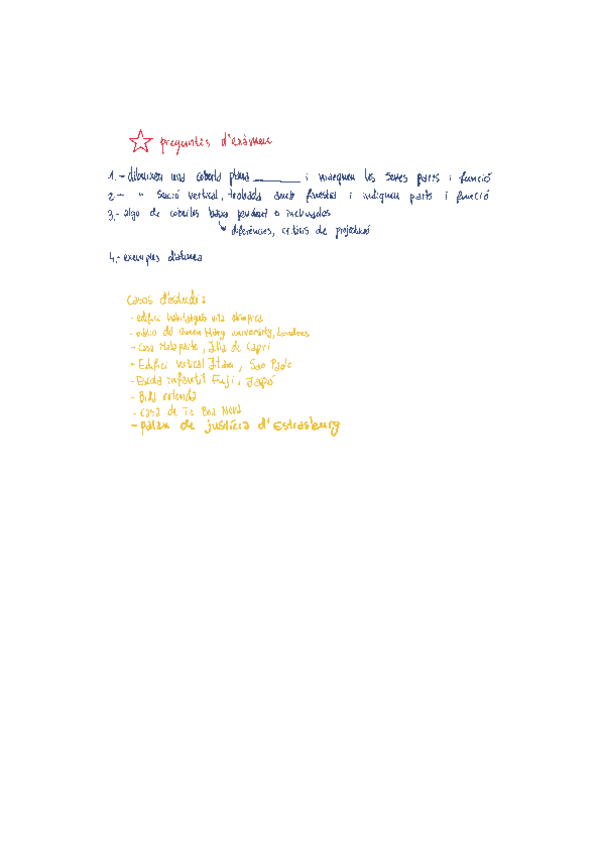 preguntes d'exàmen
1.- dibuixeu una coberta plana ________ i marqueu les seves parts i funció
2.- " secció vertical, trobada amb finestra i indiqueu parts i funció
3.- algo de cobertes baixa pendent o inclinades
diferències, criteris de projectació
4.- exemples d'aïllament
Casos d'estudi:
- edifici habitatges vila olímpica
- edifici del Queen Mary university, Londres
- Casa Malaparte, Illa de Capri
- Edifici vertical Itaim, Sao Paolo
- Escola infantil Fuji, Japó
- Bila rotonda
- Casa de Te Boa Nova
- palau de justícia d'Estrasburg